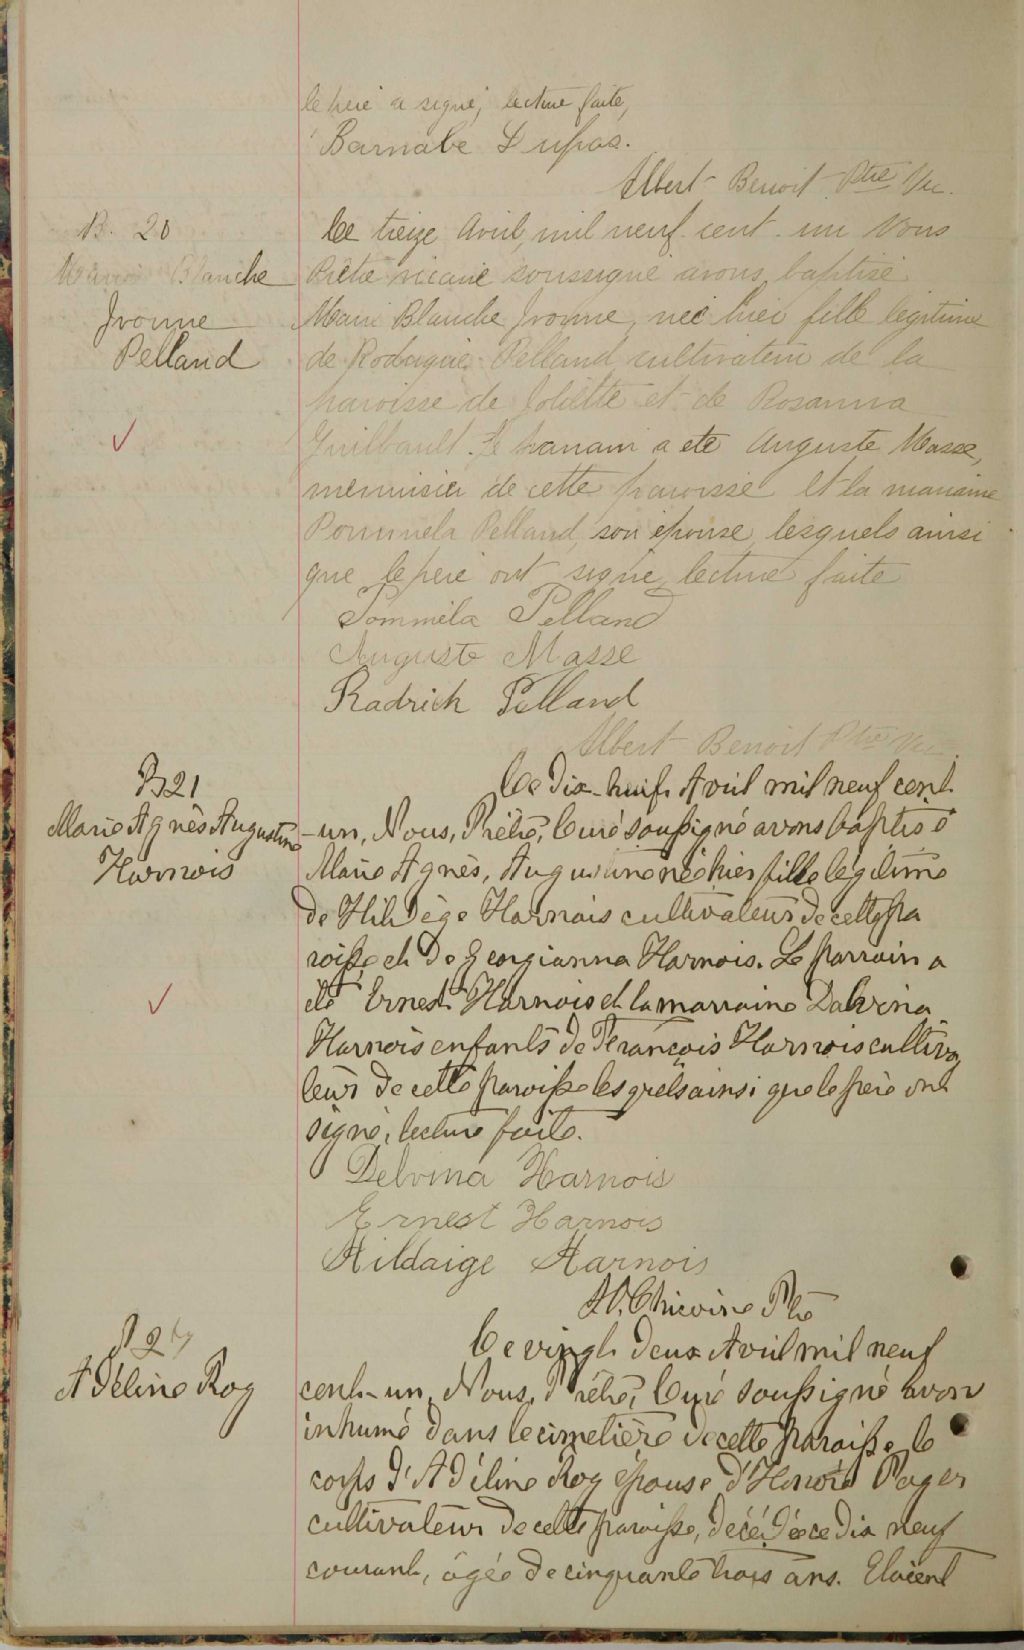 le père a signé, lecture faite,
Barnabé Dupas.
Albert Benoit Ptre Vic.
B. 20
Marie Blanche
Ivonne
Pelland
Ce treize Avril, mil neuf cent un Nous
Prêtre vicaire soussigné avons baptisé
Marie Blanche Ivonne, née hier fille légitime
de Rodrigue Pelland cultivateur de la
paroisse de Joliette et de Rosanna
Guilbault. Le parrain a été Auguste Masse,
menuisier de cette paroisse et la marraine
Pommela Pelland, son épouse, lesquels ainsi
que le père ont signé, lecture faite
Pommela Pelland
Auguste Masse
Radrick Pelland
Albert Benoit Ptre Vic.
B 21
Marie Agnès Augustine
Harnois
Ce dix-neuf Avril mil neuf cent
-un, Nous, Prêtre, Curé soussigné avons baptisé
Marie Agnès, Augustine née hier fille légitime
de Hildège Harnois cultivateur de cette pa
roisse et de Georgianna Harnois. Le parrain a
été Ernest Harnois et la marraine Dalvina
Harnois enfants de François Harnois cultiva
teur de cette paroisse lesquels ainsi que le père ont
signé, lecture faite.
Delvina Harnois
Ernest Harnois
Hildaige Harnois
Ptre
Adéline Roy
Ce vingt deux Avril mil neuf
cent-un, Nous, Prêtre, Curé soussigné avons
inhumé dans le cimetière de cette paroisse le
corps d'Adéline Roy épouse d'Honoré
cultivateur de cette paroisse, décédée ce dix neuf
courant, âgée de cinquante trois ans. Etaient